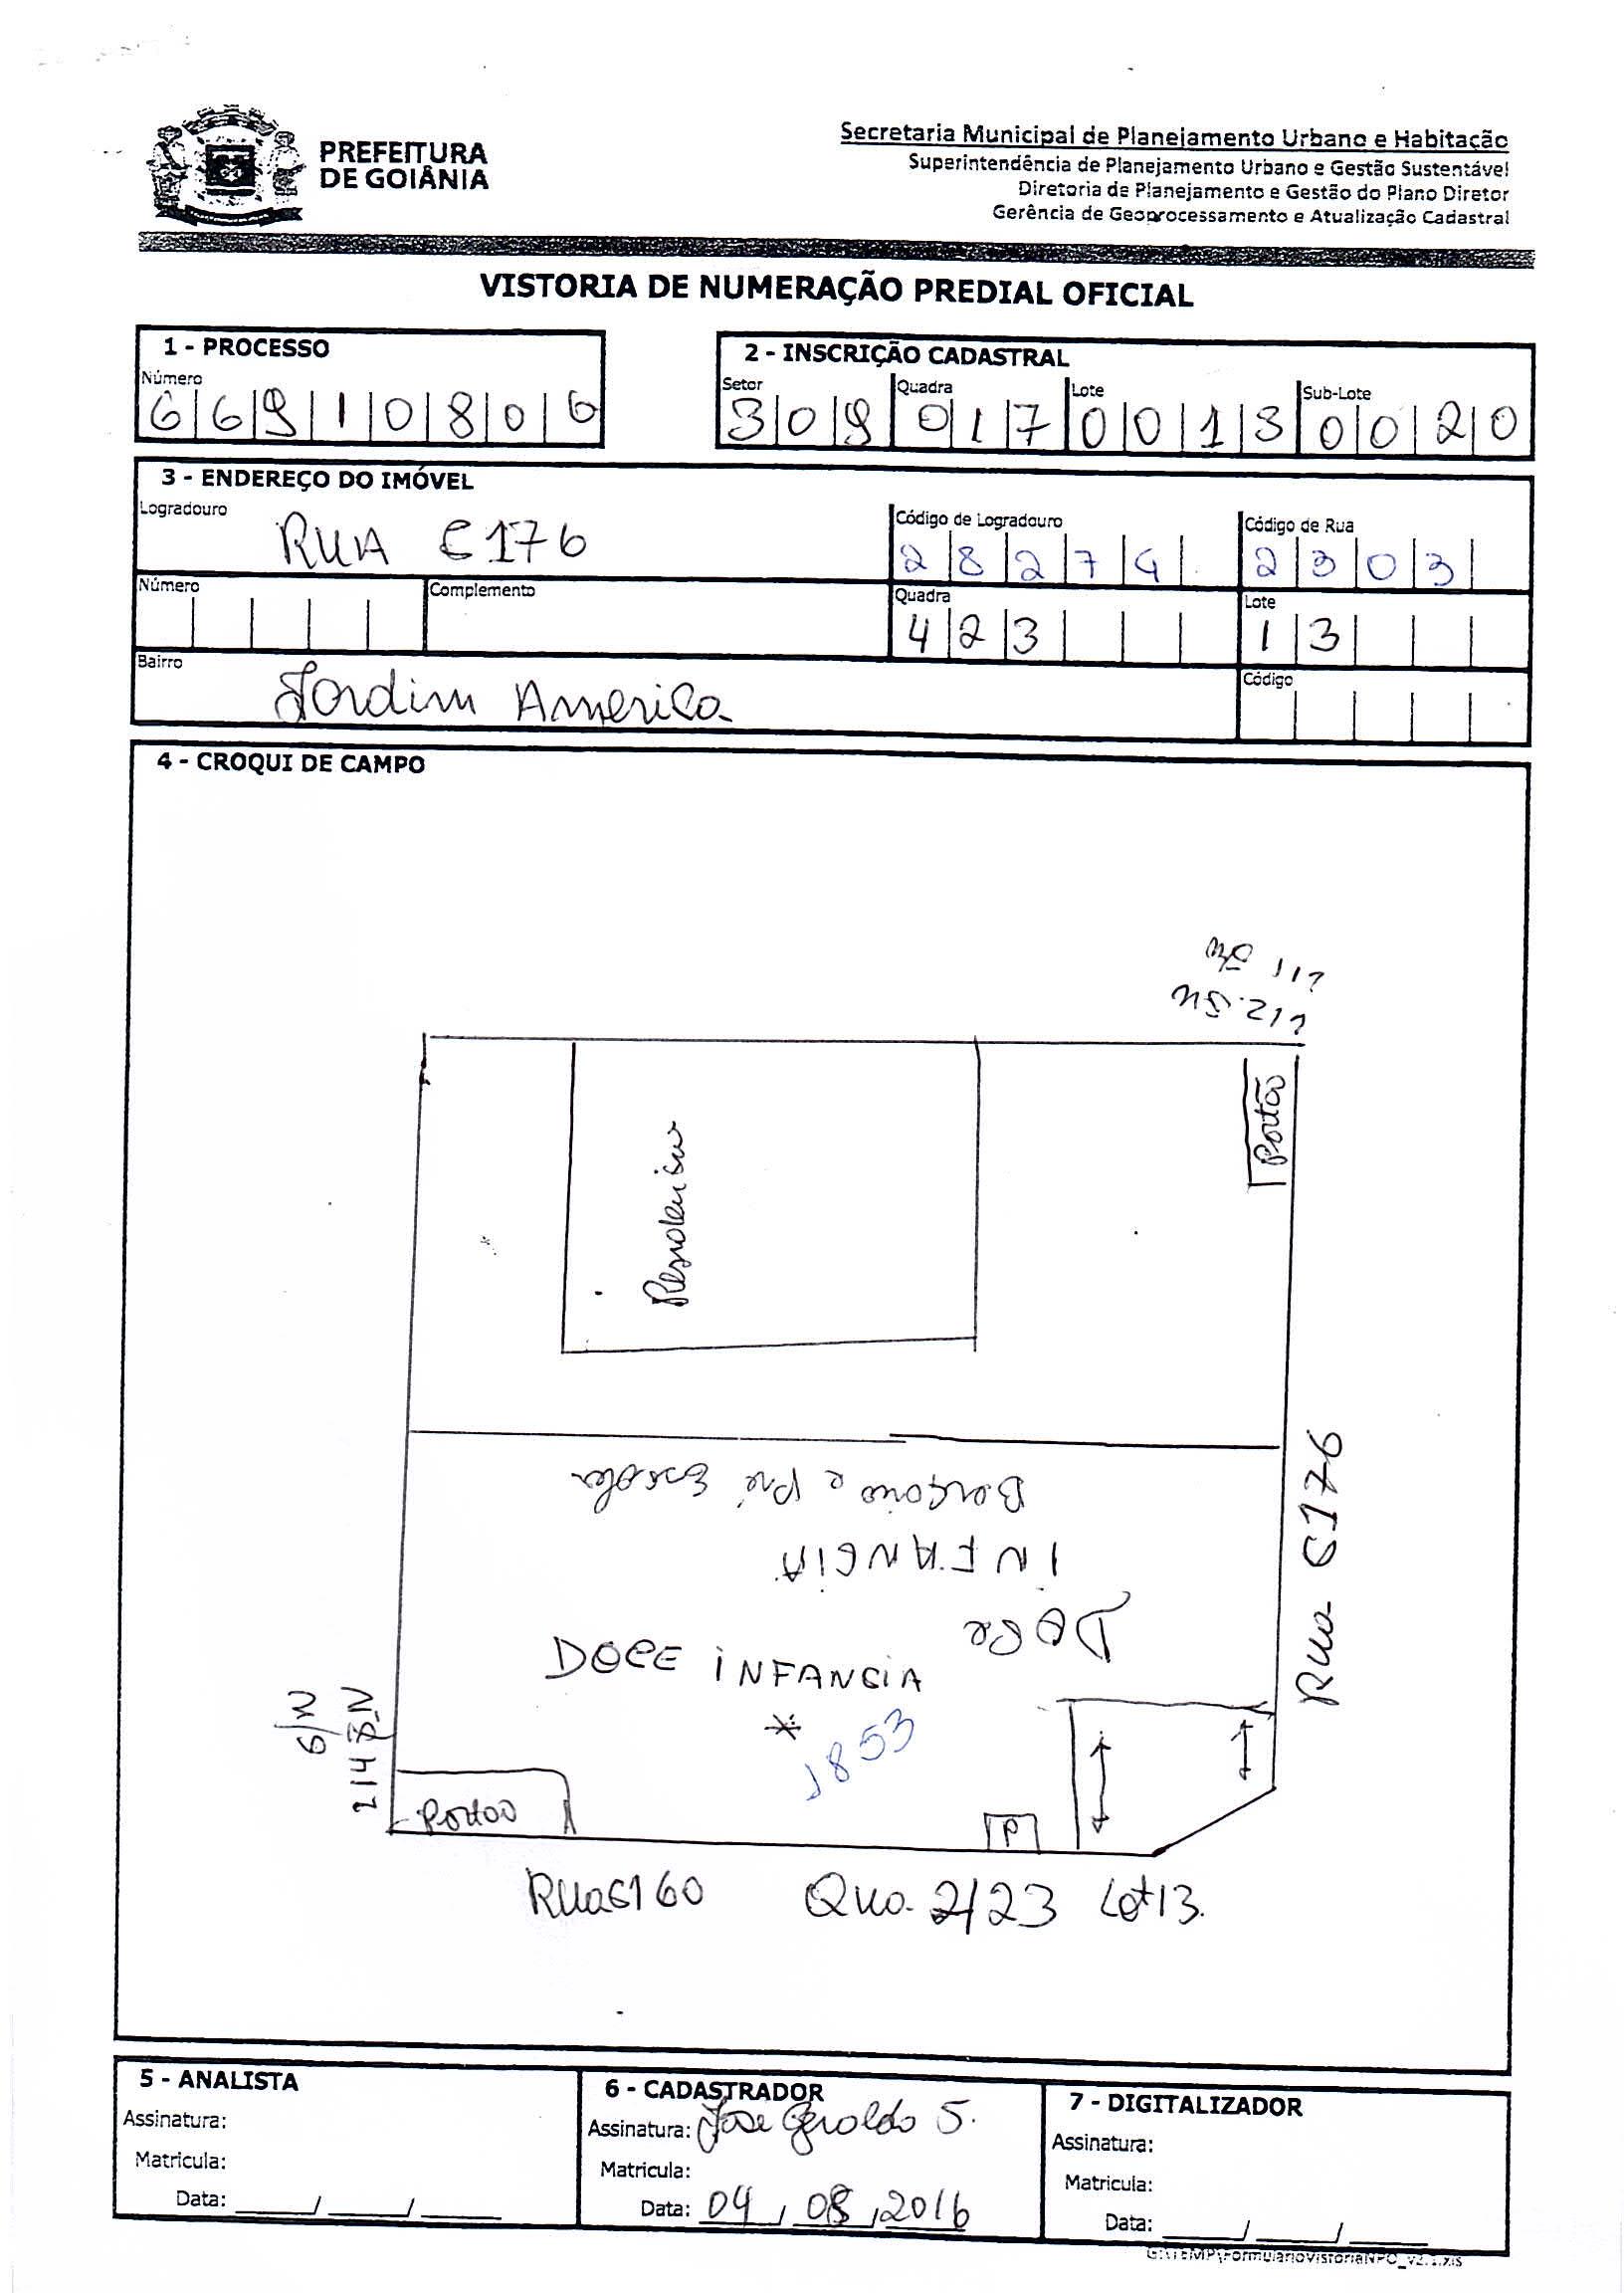 PREFEITURA
DE GOIÂNIA
Secretaria Municipal de Planejamento Urbano e Habitação
Superintendência de Planejamento Urbano e Gestão Sustentável
Diretoria de Planejamento e Gestão do Plano Diretor
Gerência de Geoprocessamento e Atualização Cadastral
VISTORIA DE NUMERAÇÃO PREDIAL OFICIAL
1 - PROCESSO
Número
6 6 9 1 0 8 0 6
2 - INSCRIÇÃO CADASTRAL
Setor Quadra Lote Sub-Lote
3 0 9 0 1 7 0 0 1 3 0 0 2 0
3 - ENDEREÇO DO IMÓVEL
Logradouro Código de Logradouro Código de Rua
RUA C176 2 8 2 7 4 2 3 0 3
Número Complemento Quadra Lote
4 2 3 1 3
Bairro Código
Jardim America
4 - CROQUI DE CAMPO
Portão
Residencia
Rua C176
Berçario e Pré Escola
INFANCIA
DOCE
DOCE INFANCIA
*
1853
S/N
Portão
P
Rua C160 Qua. 423 Lot 13.
5 - ANALISTA
Assinatura:
Matricula:
Data: ____/____/____
6 - CADASTRADOR
Assinatura: José Geraldo S.
Matricula:
Data: 04/08/2016
7 - DIGITALIZADOR
Assinatura:
Matricula:
Data: ____/____/____
G:\TEMP\FormularioVistoriaNPO_v2.1.xls